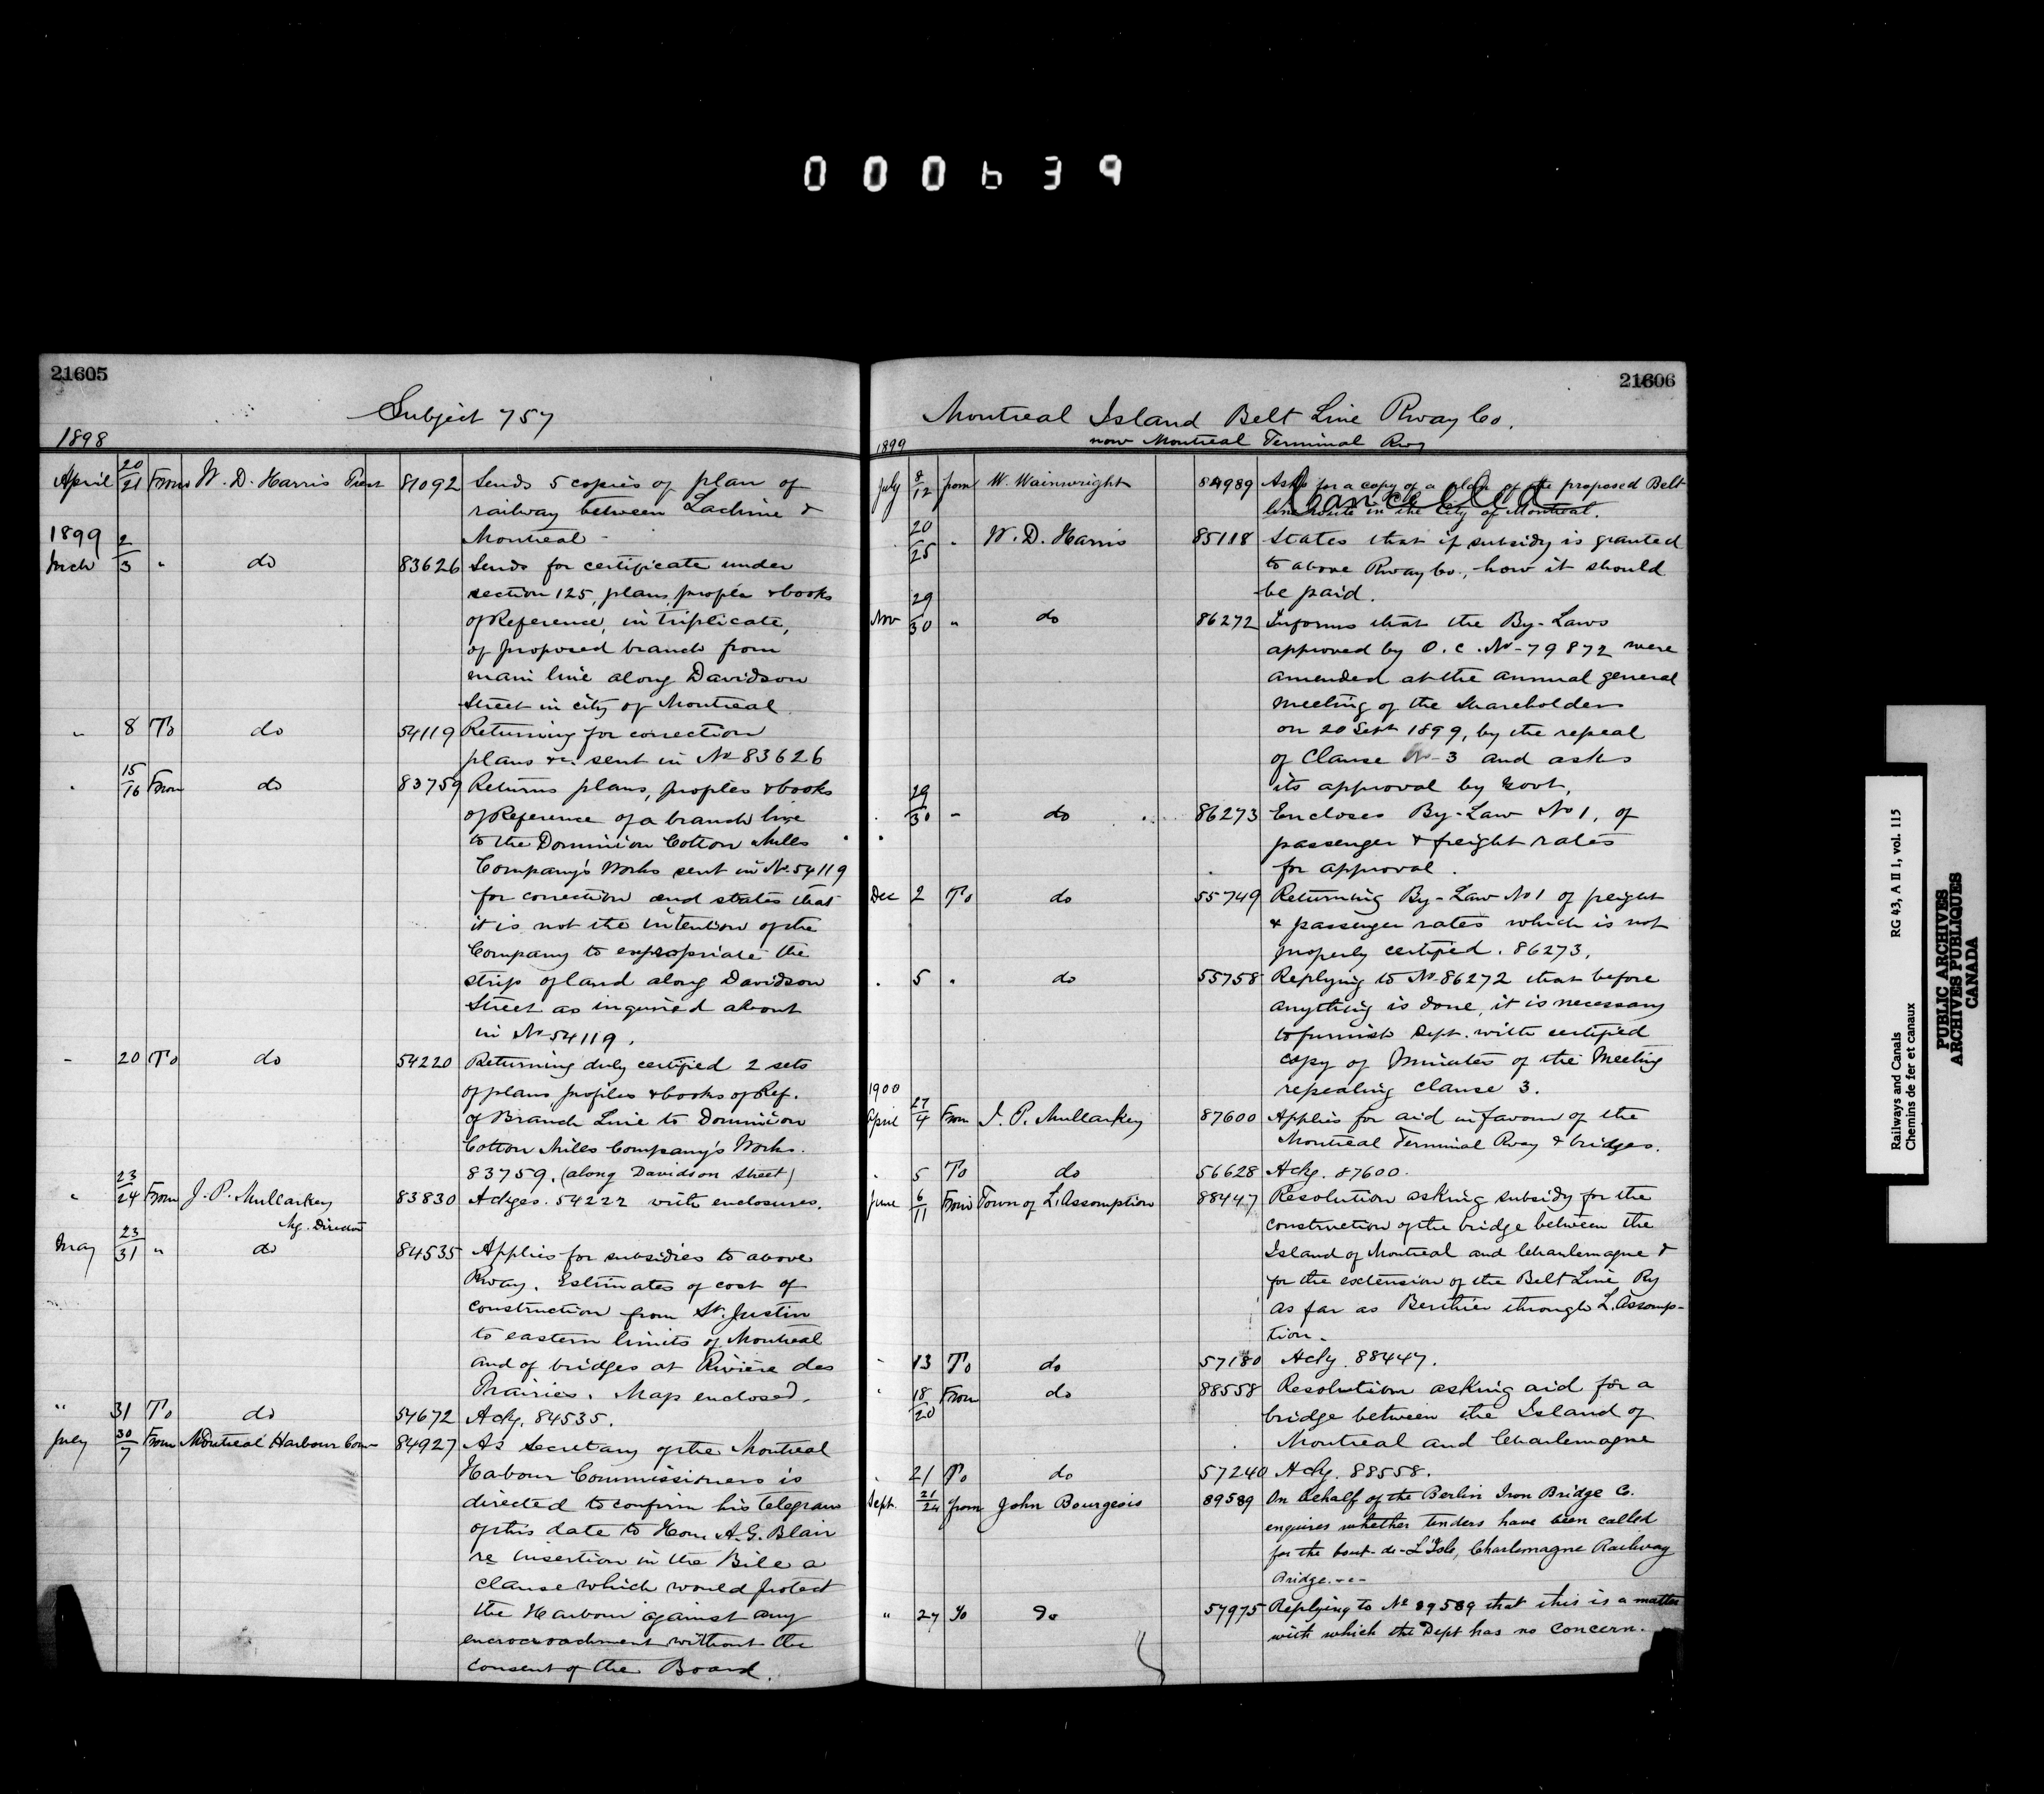 000639
21605
Subject 757
1898
April 20/21 From W. D. Harris Prest 81092 Sends 5 copies of plan of
railway between Lachine &
Montreal -
1899
Mch 2/3 " do 83626 Sends for certificate under
section 125, plans, profiles & books
of Reference, in triplicate,
of proposed branch from
main line along Davidson
Street in city of Montreal
" 8 To do 54119 Returning for correction
plans &c. sent in No 83626
" 15/16 From do 83759 Returns plans, profiles & books
of Reference of a branch line
to the Dominion Cotton Mills
Company's Works sent in No. 54119
for correction and states that
it is not the intention of the
Company to expropriate the
strip of land along Davidson
Street as inquired about
in No 54119.
" 20 To do 54220 Returning duly certified 2 sets
of plans profiles & books of Ref.
of Branch Line to Dominion
Cotton Mills Company's Works.
83759. (along Davidson Street)
" 23/24 From J. P. Mullarkey 83830 Ackges. 54222 with enclosures.
Mg. Director
May 23/31 " do 84535 Applies for subsidies to above
Rway. Estimates of cost of
construction from St. Justin
to eastern limits of Montreal
and of bridges at Rivière des
Prairies. Map enclosed.
" 31 To do 54672 Ackg. 84535.
July 30/7 From Montreal Harbour Com 84927 As Secretary of the Montreal
Habour Commissioners is
directed to confirm his telegram
of this date to Hon. A. G. Blair
re insertion in the Bill a
clause which would protect
the Harbour against any
encrocroachment without the
consent of the Board.
21606
Montreal Island Belt Line Rway Co.
now Montreal Terminal Rwy
1899
July 8/12 from W. Wainwright 84989 Asks for a copy of a plan of the proposed Belt
line route in the City of Montreal.
Cancelled
20/25 " W. D. Harris 85118 States that if subsidy is granted
to above Rway Co., how it should
be paid.
Nov 29/30 " do 86272 Informs that the By-Laws
approved by O. C. No-79872 were
amended at the annual general
meeting of the Shareholders
on 20 Sept 1899, by the repeal
of Clause No-3 and asks
its approval by Govt.
29/30 " do 86273 Encloses By-Law No 1, of
passenger & freight rates
for approval.
Dec 2 To do 55749 Returning By-Law No 1 of freight
& passenger rates which is not
properly certified. 86273.
" 5 " do 55758 Replying to No-86272 that before
anything is done, it is necessary
to furnish Dept. with certified
copy of Minutes of the Meeting
repealing clause 3.
1900
April 27/4 From J. P. Mullarkey 87600 Applies for aid in favour of the
Montreal Terminal Rway & bridges.
" 5 To do 56628 Ackg. 87600.
June 6/11 From Town of L'Assomption 88447 Resolution asking subsidy for the
construction of the bridge between the
Island of Montreal and Charlemagne &
for the extension of the Belt Line Ry
as far as Berthier through L'Assomp-
tion.
" 13 To do 57180 Ackg. 88447.
" 18/20 From do 88558 Resolution asking aid for a
bridge between the Island of
Montreal and Charlemagne
" 21 To do 57240 Ackg. 88558.
Sept. 21/24 from John Bourgeois 89589 On behalf of the Berlin Iron Bridge C.
enquires whether tenders have been called
for the bout-de-L'Isle, Charlemagne Railway
Bridge. - - -
" 27 To Do 57975 Replying to No 89589 that this is a matter
with which the Dept has no concern.
Railways and Canals RG 43, A II 1, vol. 115
Chemins de fer et canaux
PUBLIC ARCHIVES
ARCHIVES PUBLIQUES
CANADA